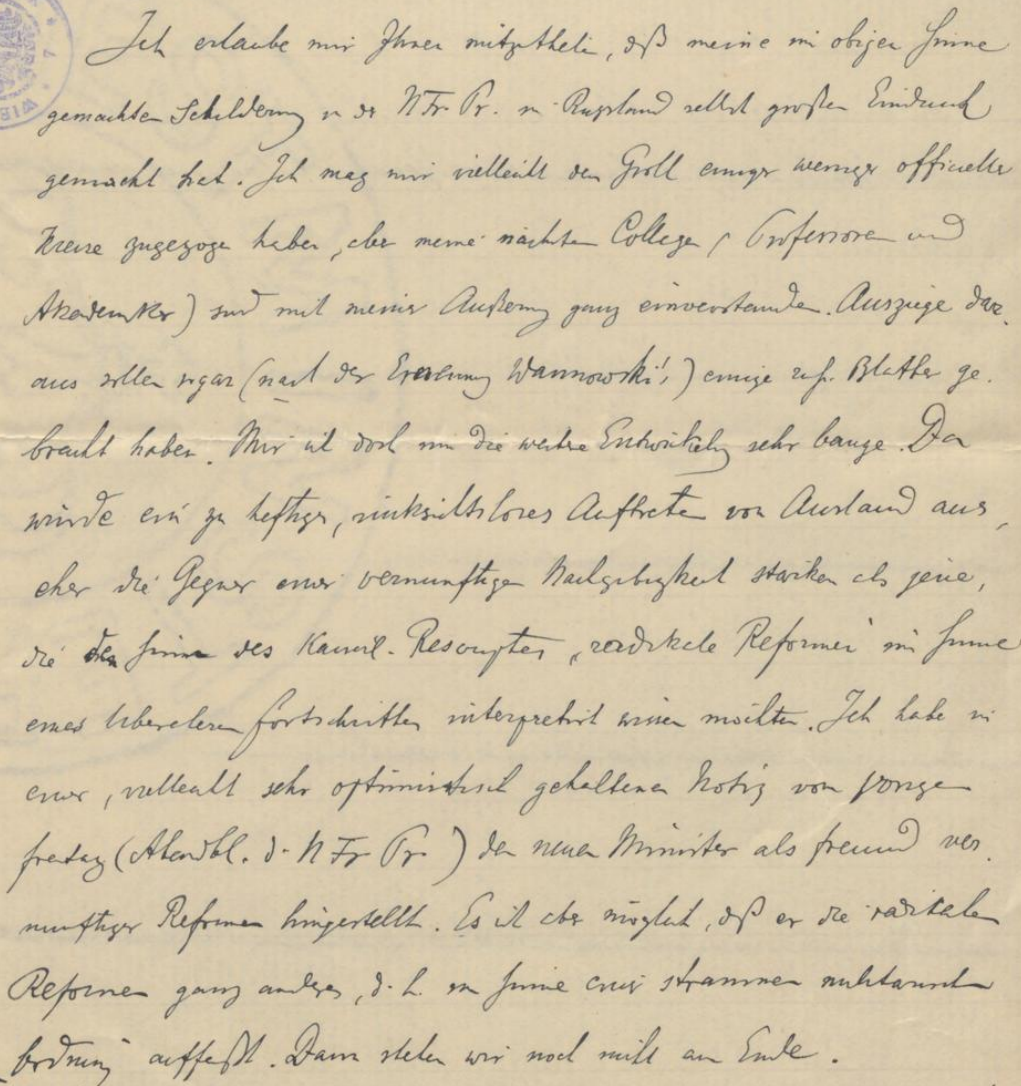 Ich erlaube mir Ihnen mitzutheilen, dß meine im obigen Sinne
gemachten Schilderung in der N Fr. Pr. in Russland selbst großen Eindruck
gemacht hat. Ich mag mir vielleicht den Groll einiger weniger officieller
Kreise zugezogen haben, aber meine nächsten Collegen (Professoren und
Akademiker) sind mit meiner Äußerung ganz einverstanden. Auszüge dar-
aus sollen sogar (nach der Ernennung Wannowski's) einige russ. Blätter ge-
bracht haben. Mir ist doch um die weitere Entwicklung sehr bange. Da
würde ein zu heftiges, rücksichtsloses Auftreten von Ausland aus,
eher die Gegner einer vernünftigen Nachgiebigkeit stärken als jene,
die den Sinn des Kaiserl. Rescriptes „radikale Reformen" im Sinne
eines liberaleren Fortschrittes interpretirt wissen möchten. Ich habe in
einer, vielleicht sehr optimistisch gehaltenen Notiz vom vorigen
Freitag (Abendbl. d. N Fr Pr.) den neuen Minister als Freund ver-
nünftiger Reformen hingestellt. Es ist aber möglich, dß er die radikalen
Reformen ganz anders, d. h. im Sinne einer strammen militärischen
Ordnung auffaßt. Dann stehen wir noch nicht am Ende.